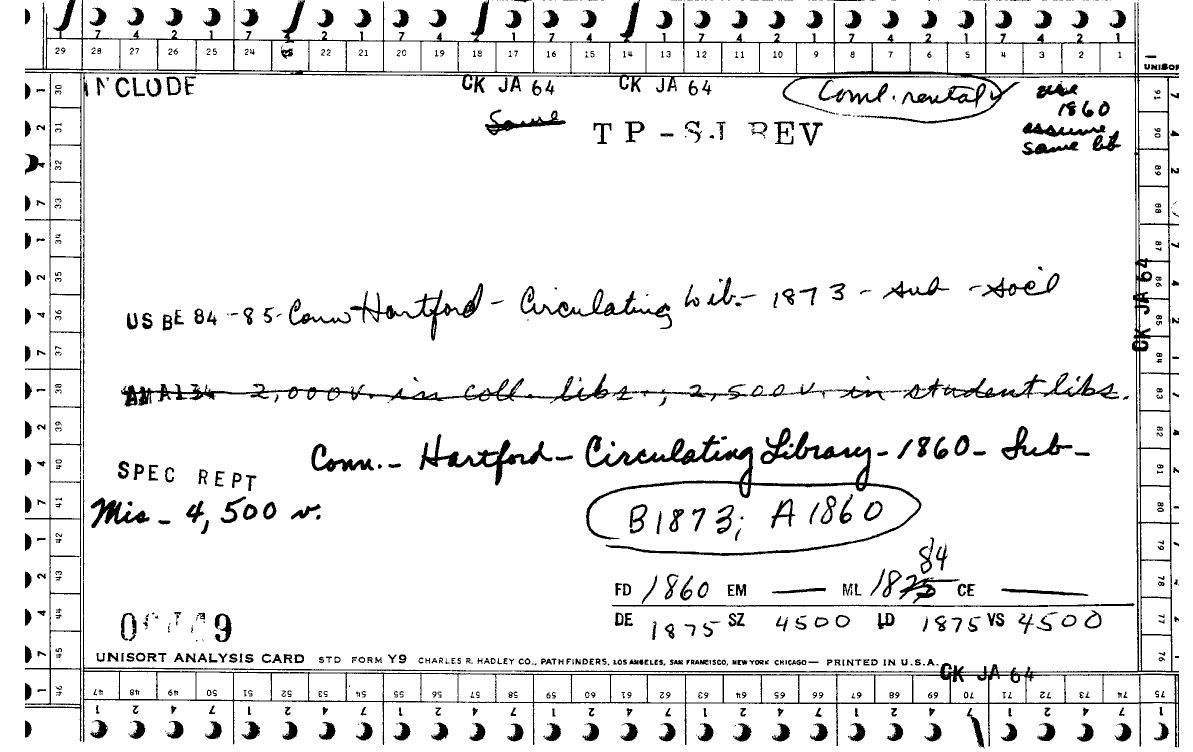 7 4 2 1 7 4 2 1 7 4 2 1 7 4 2 1 7 4 2 1 7 4 2 1 7 4 2 1
29 28 27 26 25 24 22 21 20 19 18 17 16 15 14 13 12 11 10 9 8 7 6 5 4 3 2 1
UNISOR
INCLUDE CK JA 64 CK JA 64 Coml. rental use
1860
Same TP-SJ REV assume
same lib
US BE 84-85- Conn Hartford - Circulating Lib. - 1873 - sub - soc'l
CK JA 64
AM A134 2,000v. in coll. libs.; 2,500v. in student libs.
Conn. - Hartford - Circulating Library - 1860 - Sub -
SPEC REPT
Mis - 4,500 v.
B1873; A1860
84
FD 1860 EM — ML 1875 CE —
DE 1875 SZ 4500 LD 1875 VS 4500
9
UNISORT ANALYSIS CARD STD FORM Y9 CHARLES R. HADLEY CO., PATHFINDERS, LOS ANGELES, SAN FRANCISCO, NEW YORK CHICAGO — PRINTED IN U.S.A.
CK JA 64
30 31 32 33 34 35 36 37 38 39 40 41 42 43 44 45 46
91 90 89 88 87 86 85 84 83 82 81 80 79 78 77 76
47 48 49 50 51 52 53 54 55 56 57 58 59 60 61 62 63 64 65 66 67 68 69 70 71 72 73 74 75
1 2 4 7 1 2 4 7 1 2 4 7 1 2 4 7 1 2 4 7 1 2 4 7 1 2 4 7 1